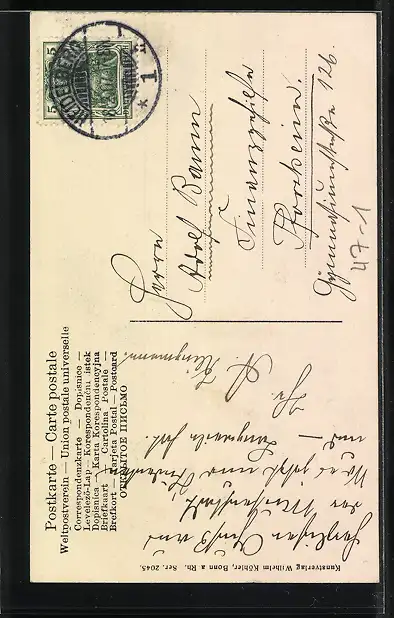 Postkarte — Carte postale
Weltpostverein — Union postale universelle
Correspondenzkarte — Dopisnice —
Levelező-Lap — Korespondenční lístek
Dopisnica — Karta Korespondencyjna
Briefkaart — Cartolina Postale —
Brefkort — Tarjeta Postal — Postcard
ОТКРЫТОЕ ПИСЬМО
5
5
HEIDELBERG
* 1
Herrn
Adolf Baum
Finanzgehilfe
Pforzheim.
Gymnasiumstraße 126.
47-1
Herzlichen Gruß aus
der Musenstadt.
und —
Ihr
A. Jungmann.
Kunstverlag Wilhelm Köhler, Bonn a Rh. Ser. 2045.